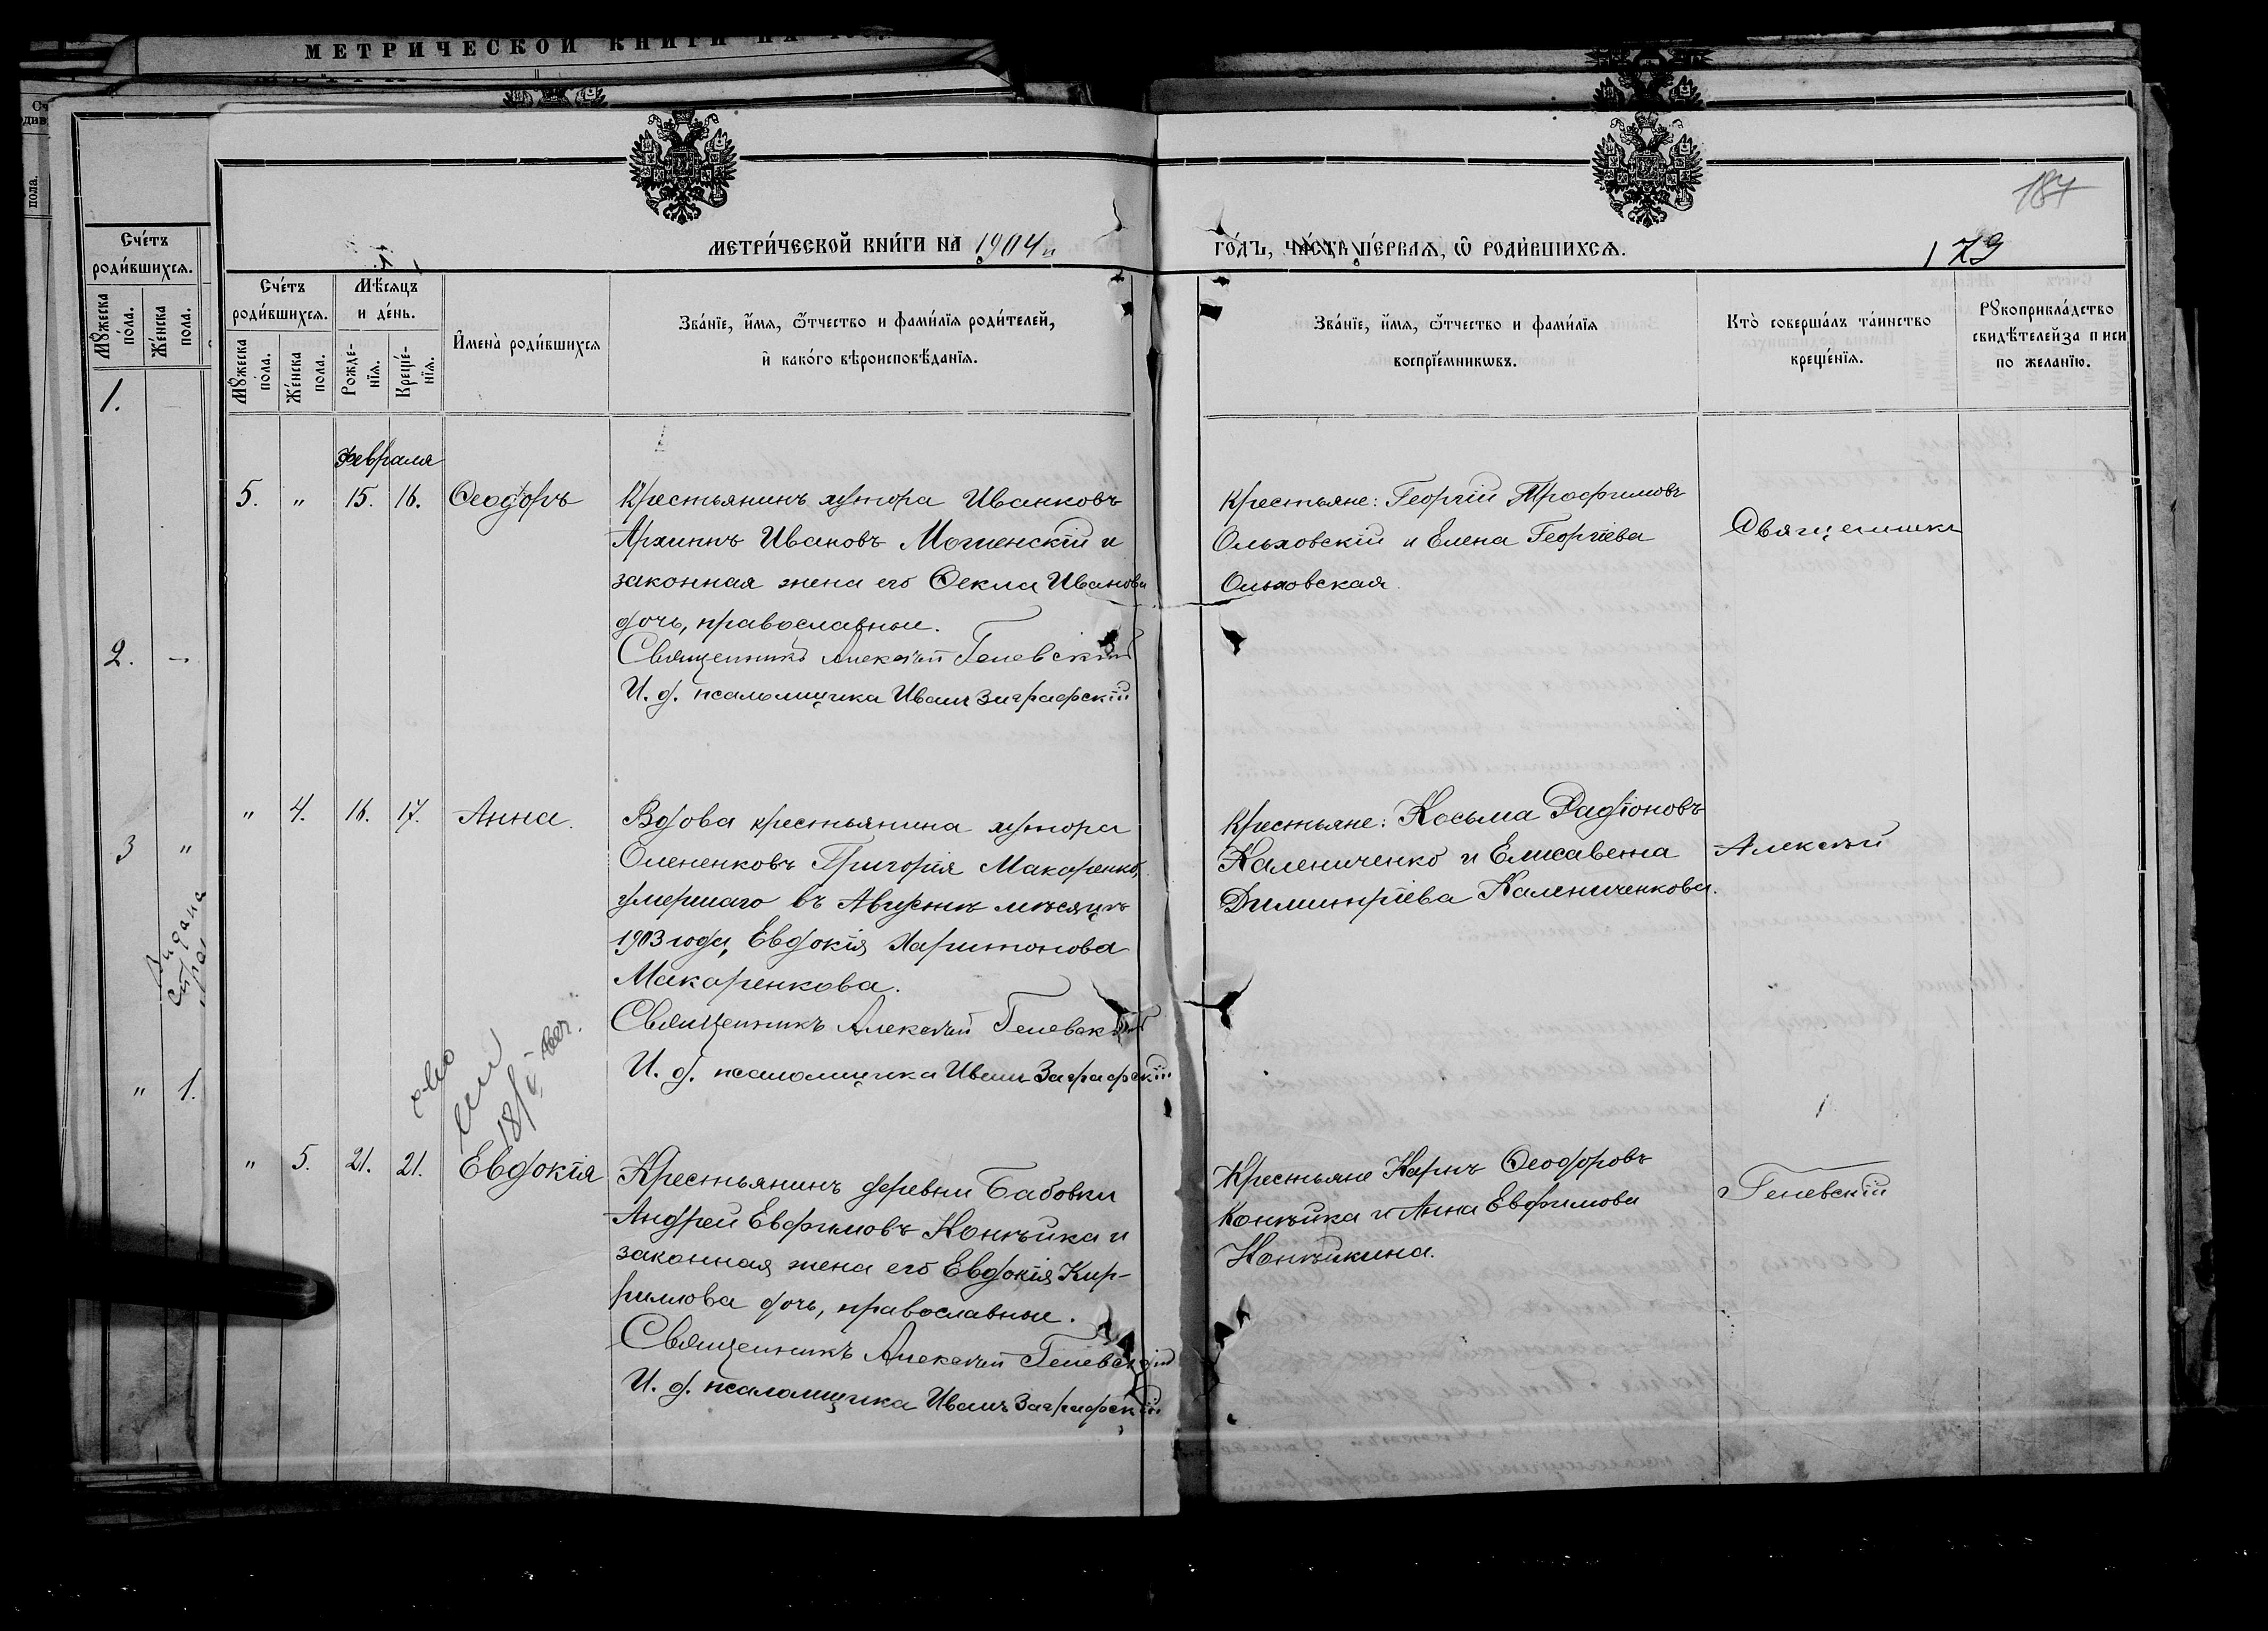 МЕТРИЧЕСКОЙ КНИГИ НА
Сче́тъ
роди́вшихсѧ.
Мꙋжеска
по́ла.
Же́нска
пола.
1.
2.
3 "
" 1.
187
метри́ческой кни́ги на 1904
го́дъ, ча́сть пе́рваѧ, ѡ роди́вшихсѧ.
179
Сче́тъ
роди́вшихсѧ.
Мꙋжеска
пола.
Же́нска
пола.
Мѣ́сѧцъ
и де́нь.
Рожде-
нїѧ.
Креще́-
нїѧ.
Имена̀ роди́вшихсѧ
Зва́нїе, и́мѧ, ѻ́тчество и фами́лїѧ роди́телей,
и како́го вѣроисповѣ́данїѧ.
Зва́нїе, и́мѧ, ѻ́тчество и фами́лїѧ
воспрїе́мникѡвъ.
Кто̀ соверша́лъ та́инство
креще́нїѧ.
Рꙋкоприкла́дство
свидѣ́телей за писи
по жела́нїю.
Февраля
5. " 15. 16. Ѳеодоръ
Крестьянинъ хутора Иванковъ
Архиппъ Ивановъ Могиенскій и
законная жена его Ѳекла Иванова
дочь, православные.
Священникъ Алексѣй Гелевскій
И. д. псаломщика Иванъ Заграфскій
Крестьяне: Георгій Трофимовъ
Ольховскій и Елена Георгіева
Ольховская
Священникъ
" 4. 16. 17. Анна.
Вдова крестьянина хутора
Олененковъ Григорія Макаренко,
умершаго въ Августѣ мѣсяцѣ
1903 года, Евдокія Харитонова
Макаренкова.
Священникъ Алексѣй Гелевскій
И. д. псаломщика Иванъ Заграфскій
Крестьяне: Косьма Радіоновъ
Калениченко и Елисавета
Димитріева Калениченкова.
Алексѣй
" 5. 21. 21. Евдокія
Крестьянинъ деревни Бабовки
Андрей Евфимовъ Конѣйка и
законная жена его Евдокія Кир-
риллова дочь, православные.
Священникъ Алексѣй Гелевскій
И. д. псаломщика Иванъ Заграфскій
Крестьяне Карпъ Ѳеодоровъ
Конѣйка и Анна Евфимова
Конѣйкина.
Гелевскій